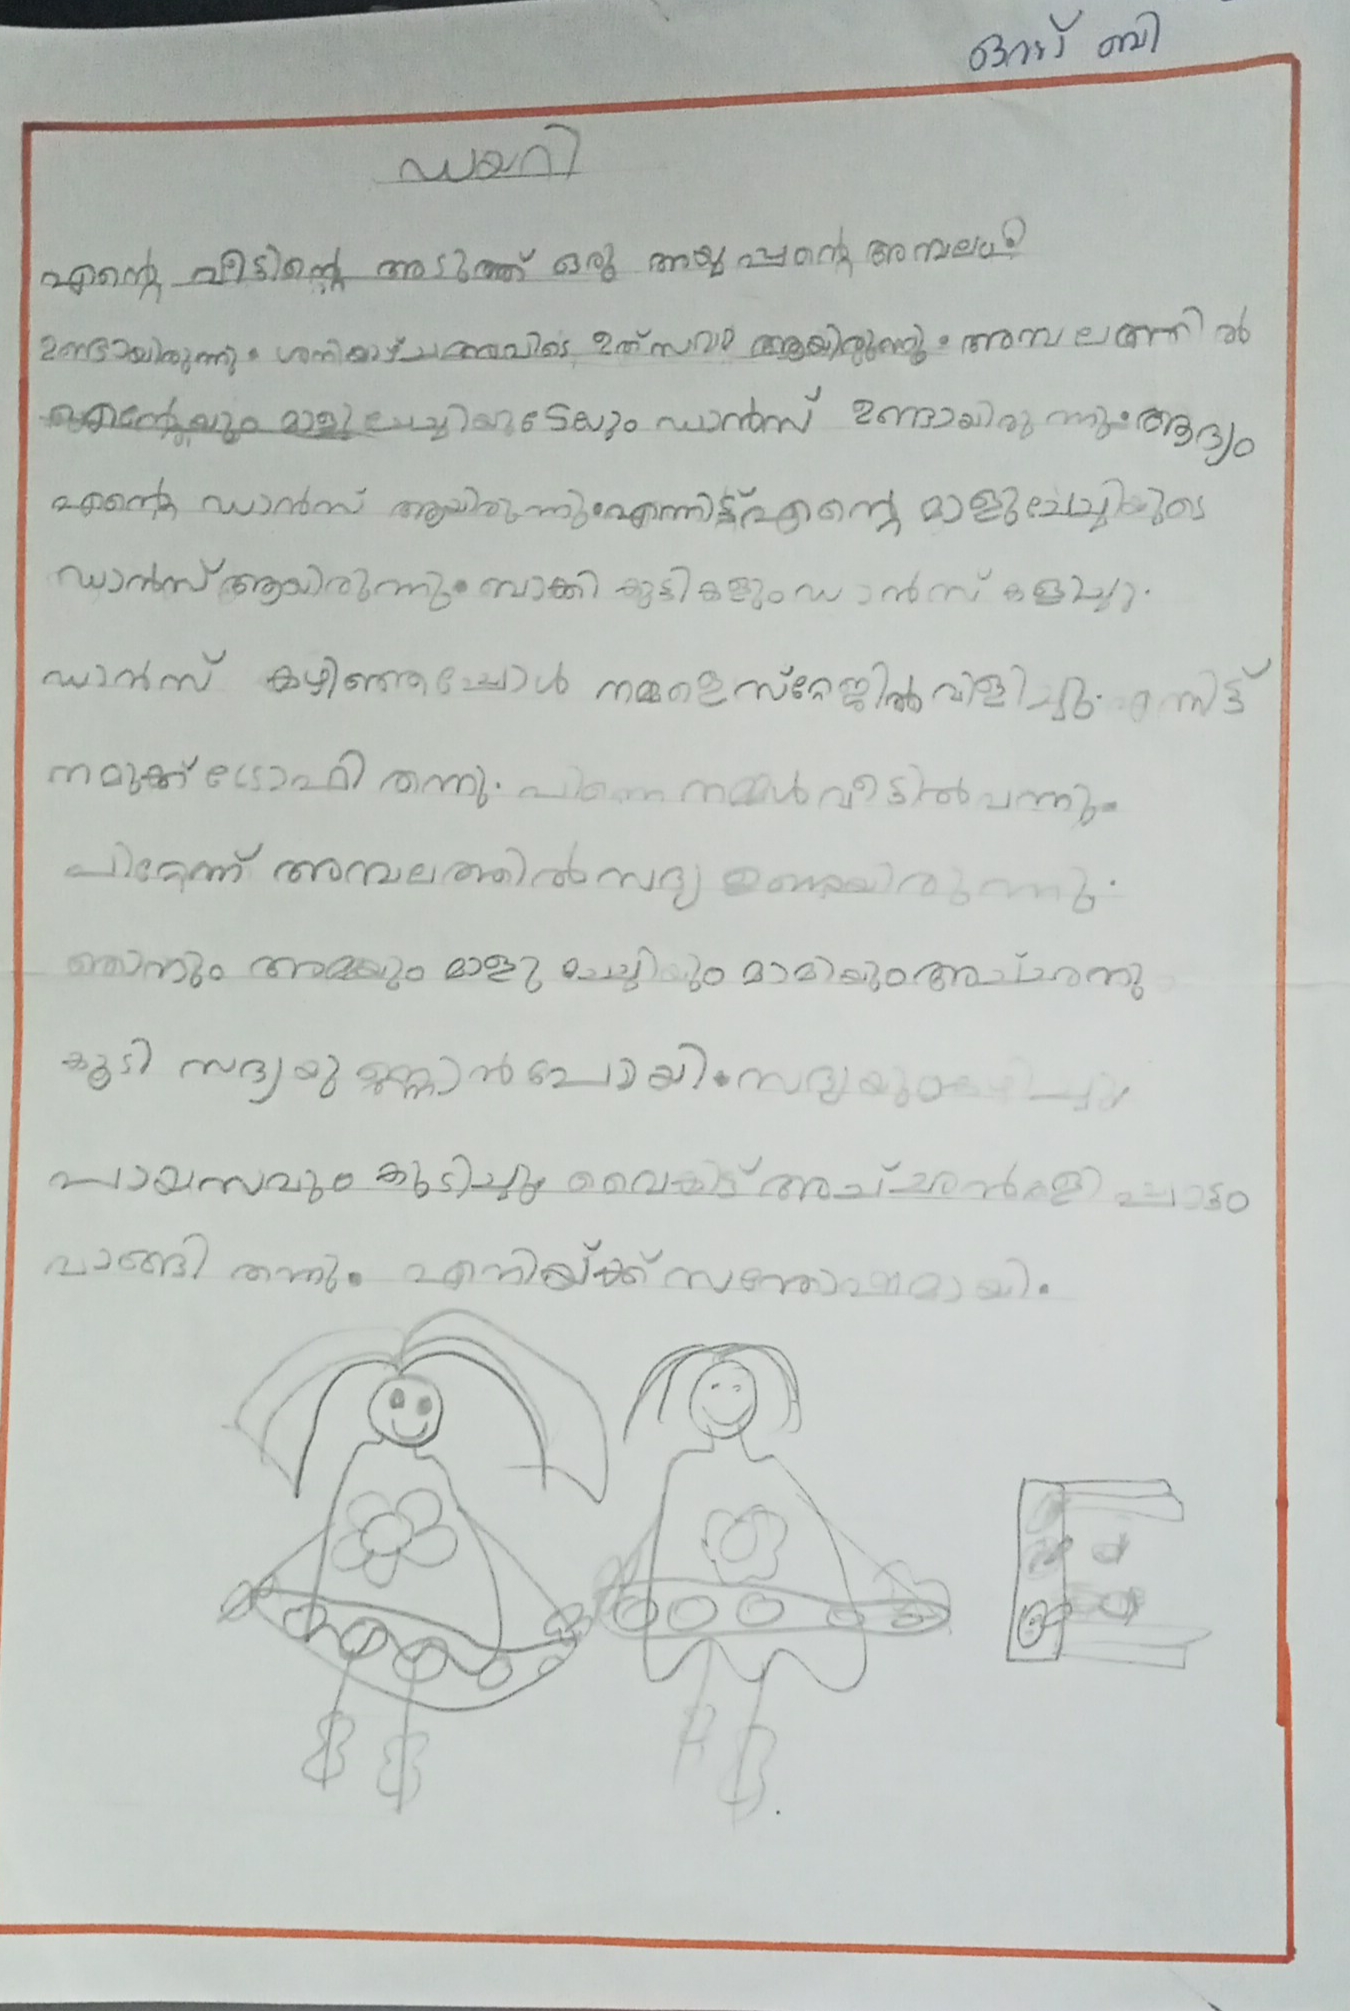 ഒന്ന് ബി
ഡയറി
എന്റെ വീട്ടിന്റെ അടുത്ത് ഒരു അയ്യപ്പന്റെ അമ്പലം
ഉണ്ടായിരുന്നു. ശനിയാഴ്ച അവിടെ ഉത്സവം ആയിരുന്നു. അമ്പലത്തിൽ
എന്റേയും മാളു ചേച്ചിയുടേയും ഡാൻസ് ഉണ്ടായിരുന്നു. ആദ്യം
എന്റെ ഡാൻസ് ആയിരുന്നു. എന്നിട്ട് എന്റെ മാളു ചേച്ചിയുടെ
ഡാൻസ് ആയിരുന്നു. ബാക്കി കുട്ടികളും ഡാൻസ് കളിച്ചു.
ഡാൻസ് കഴിഞ്ഞപ്പോൾ നമ്മളെ സ്റ്റേജിൽ വിളിച്ചു. എന്നിട്ട്
നമുക്ക് ട്രോഫി തന്നു. പിന്നെ നമ്മൾ വീട്ടിൽ വന്നു.
പിറ്റേന്ന് അമ്പലത്തിൽ സദ്യ ഉണ്ടായിരുന്നു.
ഞാനും അമ്മയും മാളു ചേച്ചിയും മാമിയും
കൂടി സദ്യയുണ്ണാൻ പോയി. സദ്യയും കഴിച്ചു
പായസവും കുടിച്ചു. വൈകിട്ട് അച്ഛൻ കളിപ്പാട്ടം
വാങ്ങി തന്നു. എനിയ്ക്ക് സന്തോഷമായി.